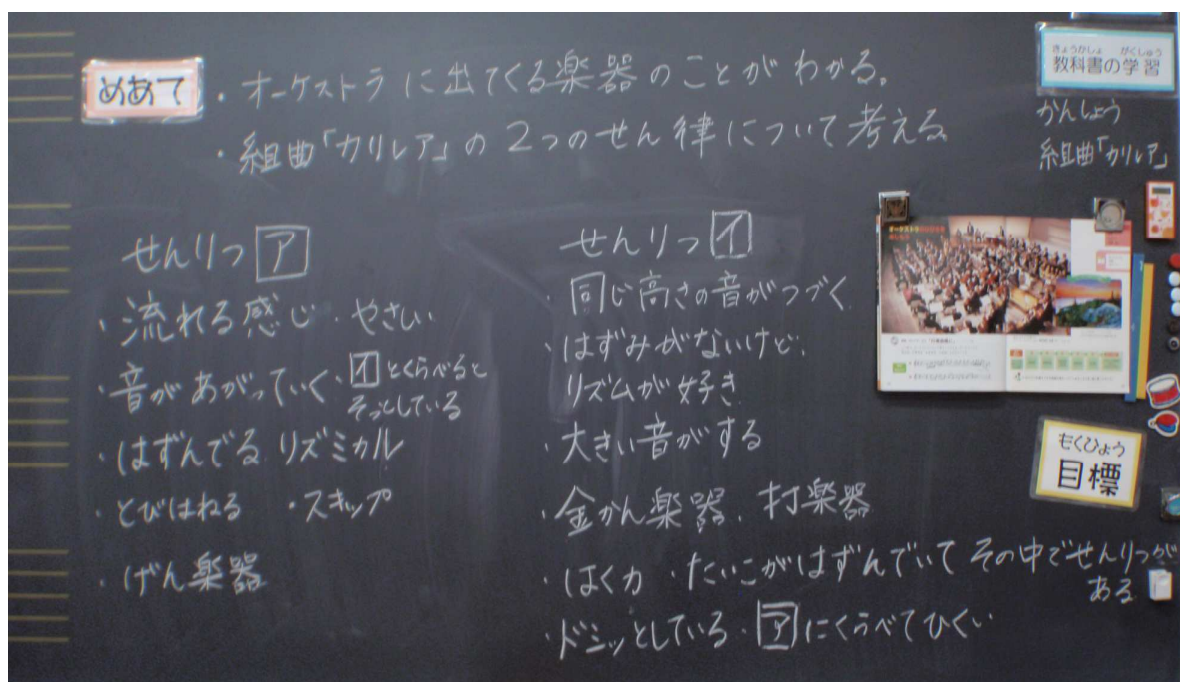 めあて ・オーケストラに出てくる楽器のことがわかる。
・組曲「カリレア」の2つのせん律について考える。
きょうかしょ がくしゅう
教科書の学習
かんしょう
組曲「カリレア」
せんりつ ア
・流れる感じ ・やさしい
・音があがっていく ・イとくらべると
そっとしている
・はずんでる リズミカル
・とびはねる ・スキップ
・げん楽器
せんりつ イ
・同じ高さの音がつづく
・はずみがないけど、
リズムが好き
・大きい音がする
・金かん楽器、打楽器
・はく力 ・たいこがはずんでいて その中でせんりつが
ある
・ドシッとしている ・アにくらべてひくい
もくひょう
目標